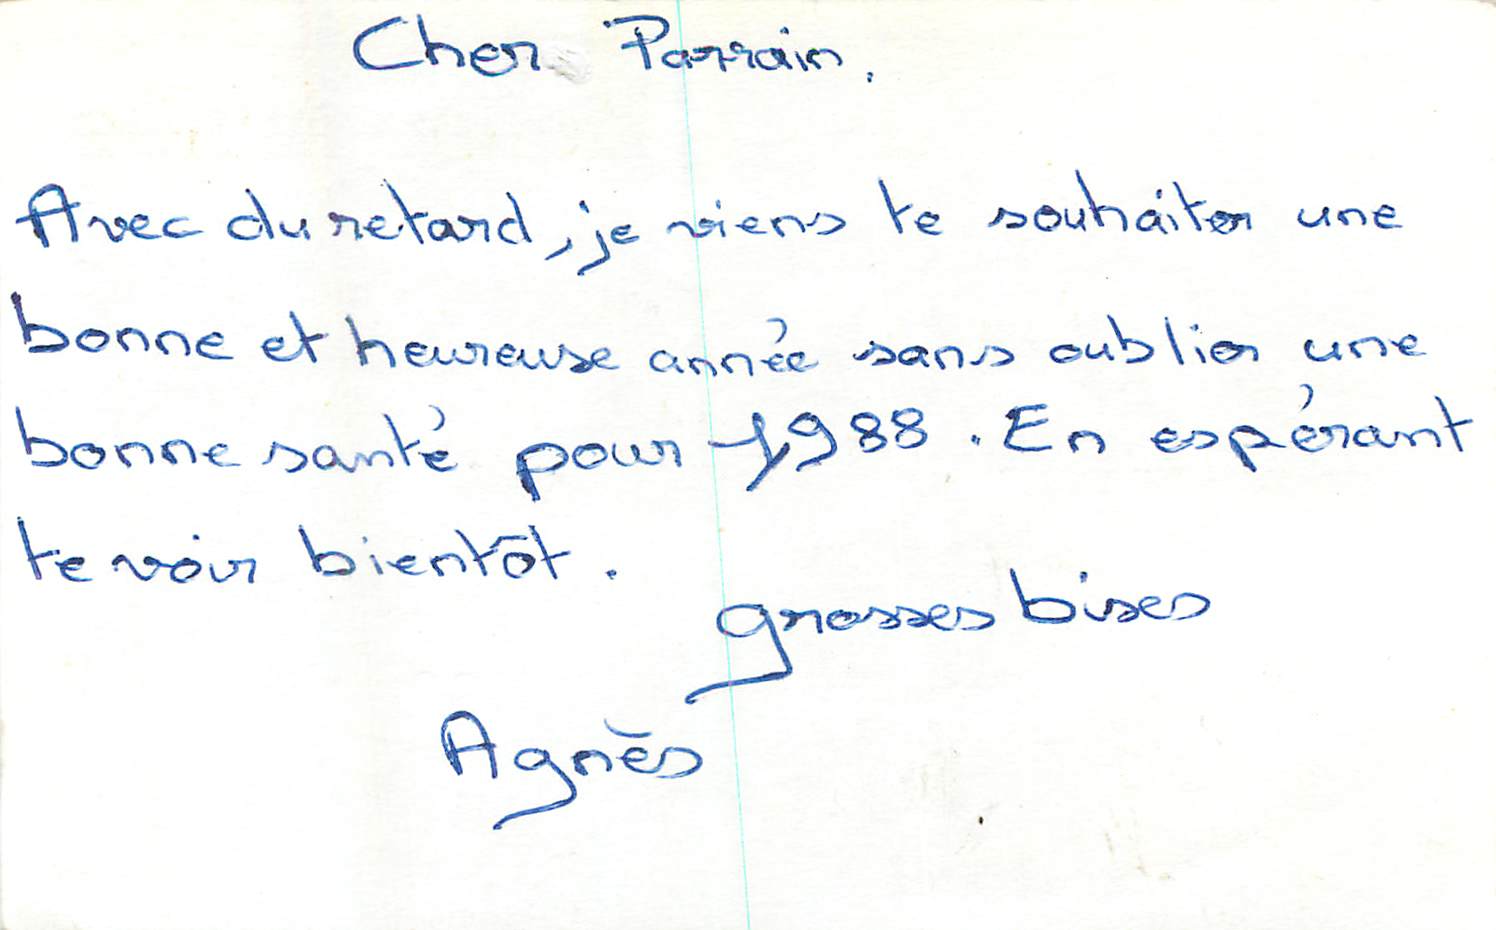 Cher Parrain,
Avec du retard, je viens te souhaiter une
bonne et heureuse année sans oublier une
bonne santé pour 1988. En espérant
te voir bientôt.
grosses bises
Agnès